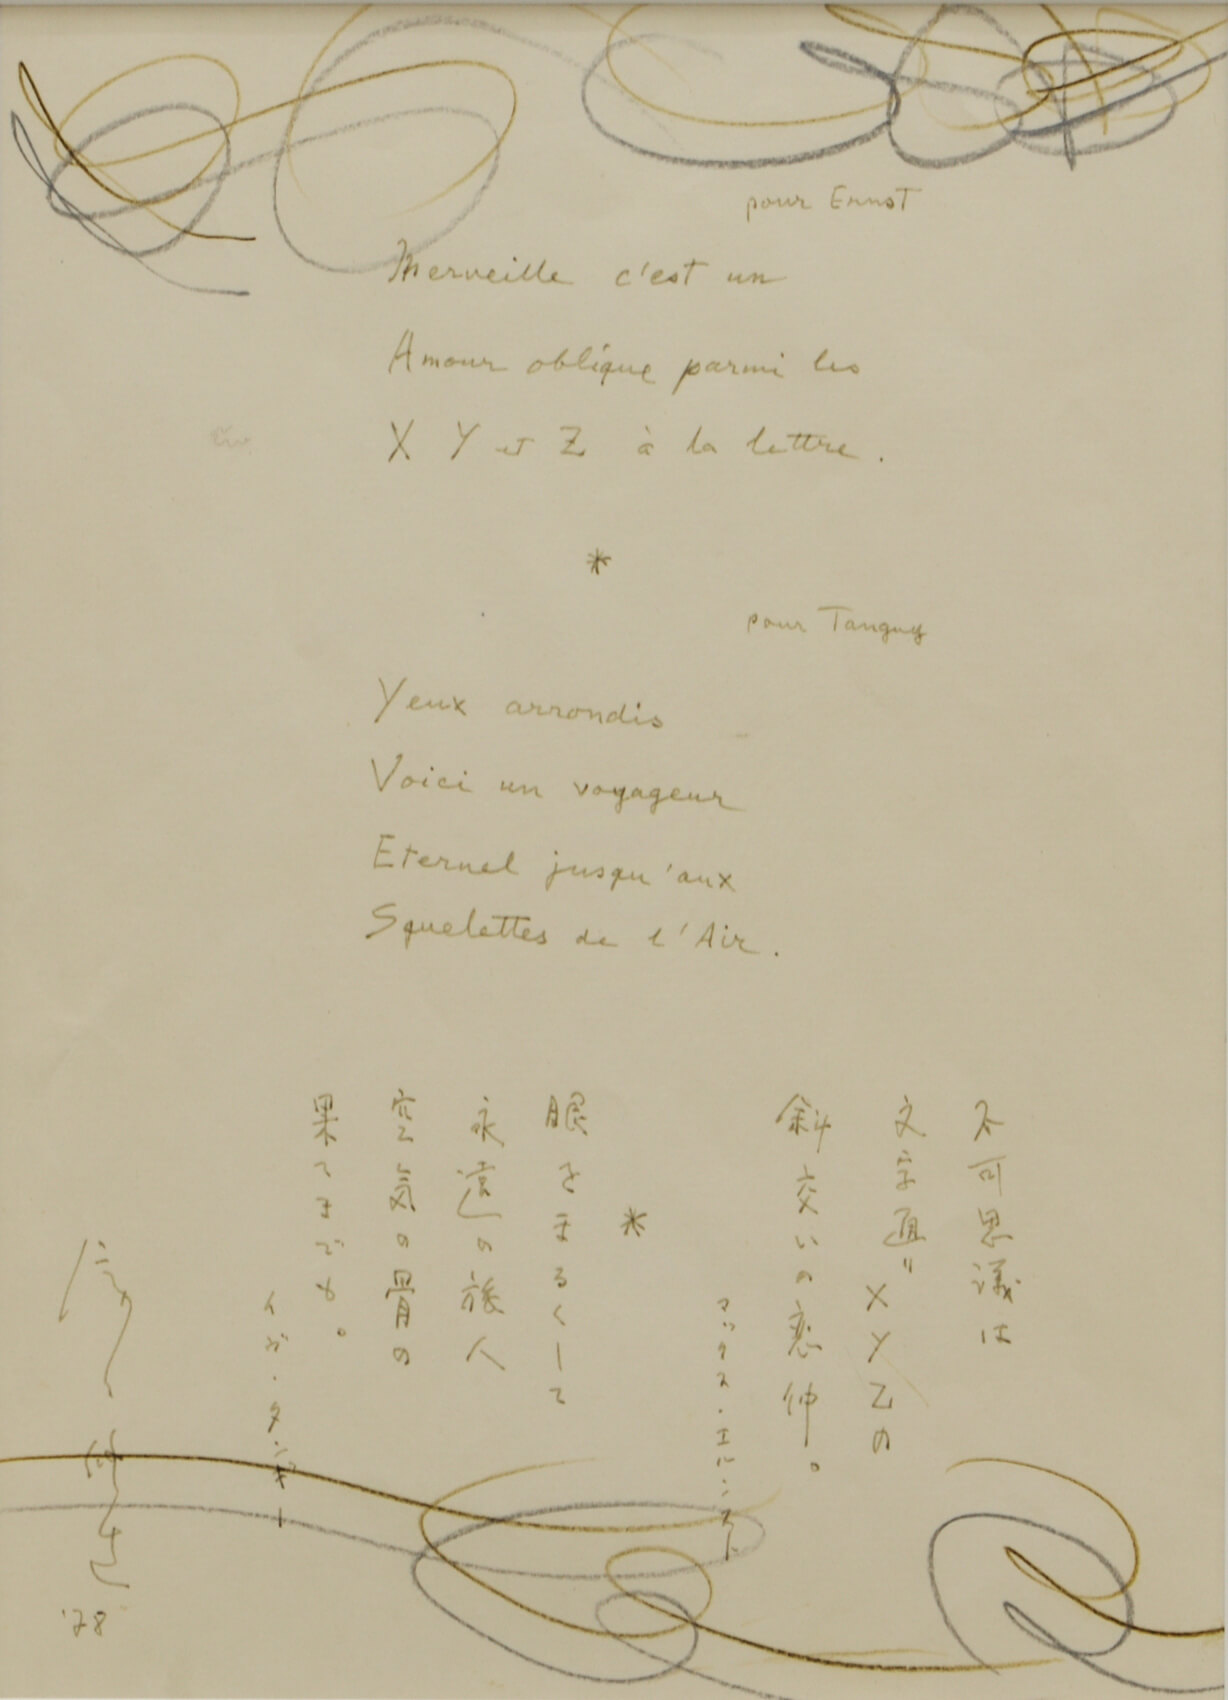 pour Ernst
Merveille c'est un
Amour oblique parmi les
X Y et Z à la lettre.
*
pour Tanguy
Yeux arrondis
Voici un voyageur
Eternel jusqu'aux
Squelettes de l'Air.
不可思議は
文字通り XYZの
斜交いの恋仲。
マックス・エルンスト
*
眼をまるくして
永遠の旅人
空気の骨の
果てまでも。
イヴ・タンギー
'78